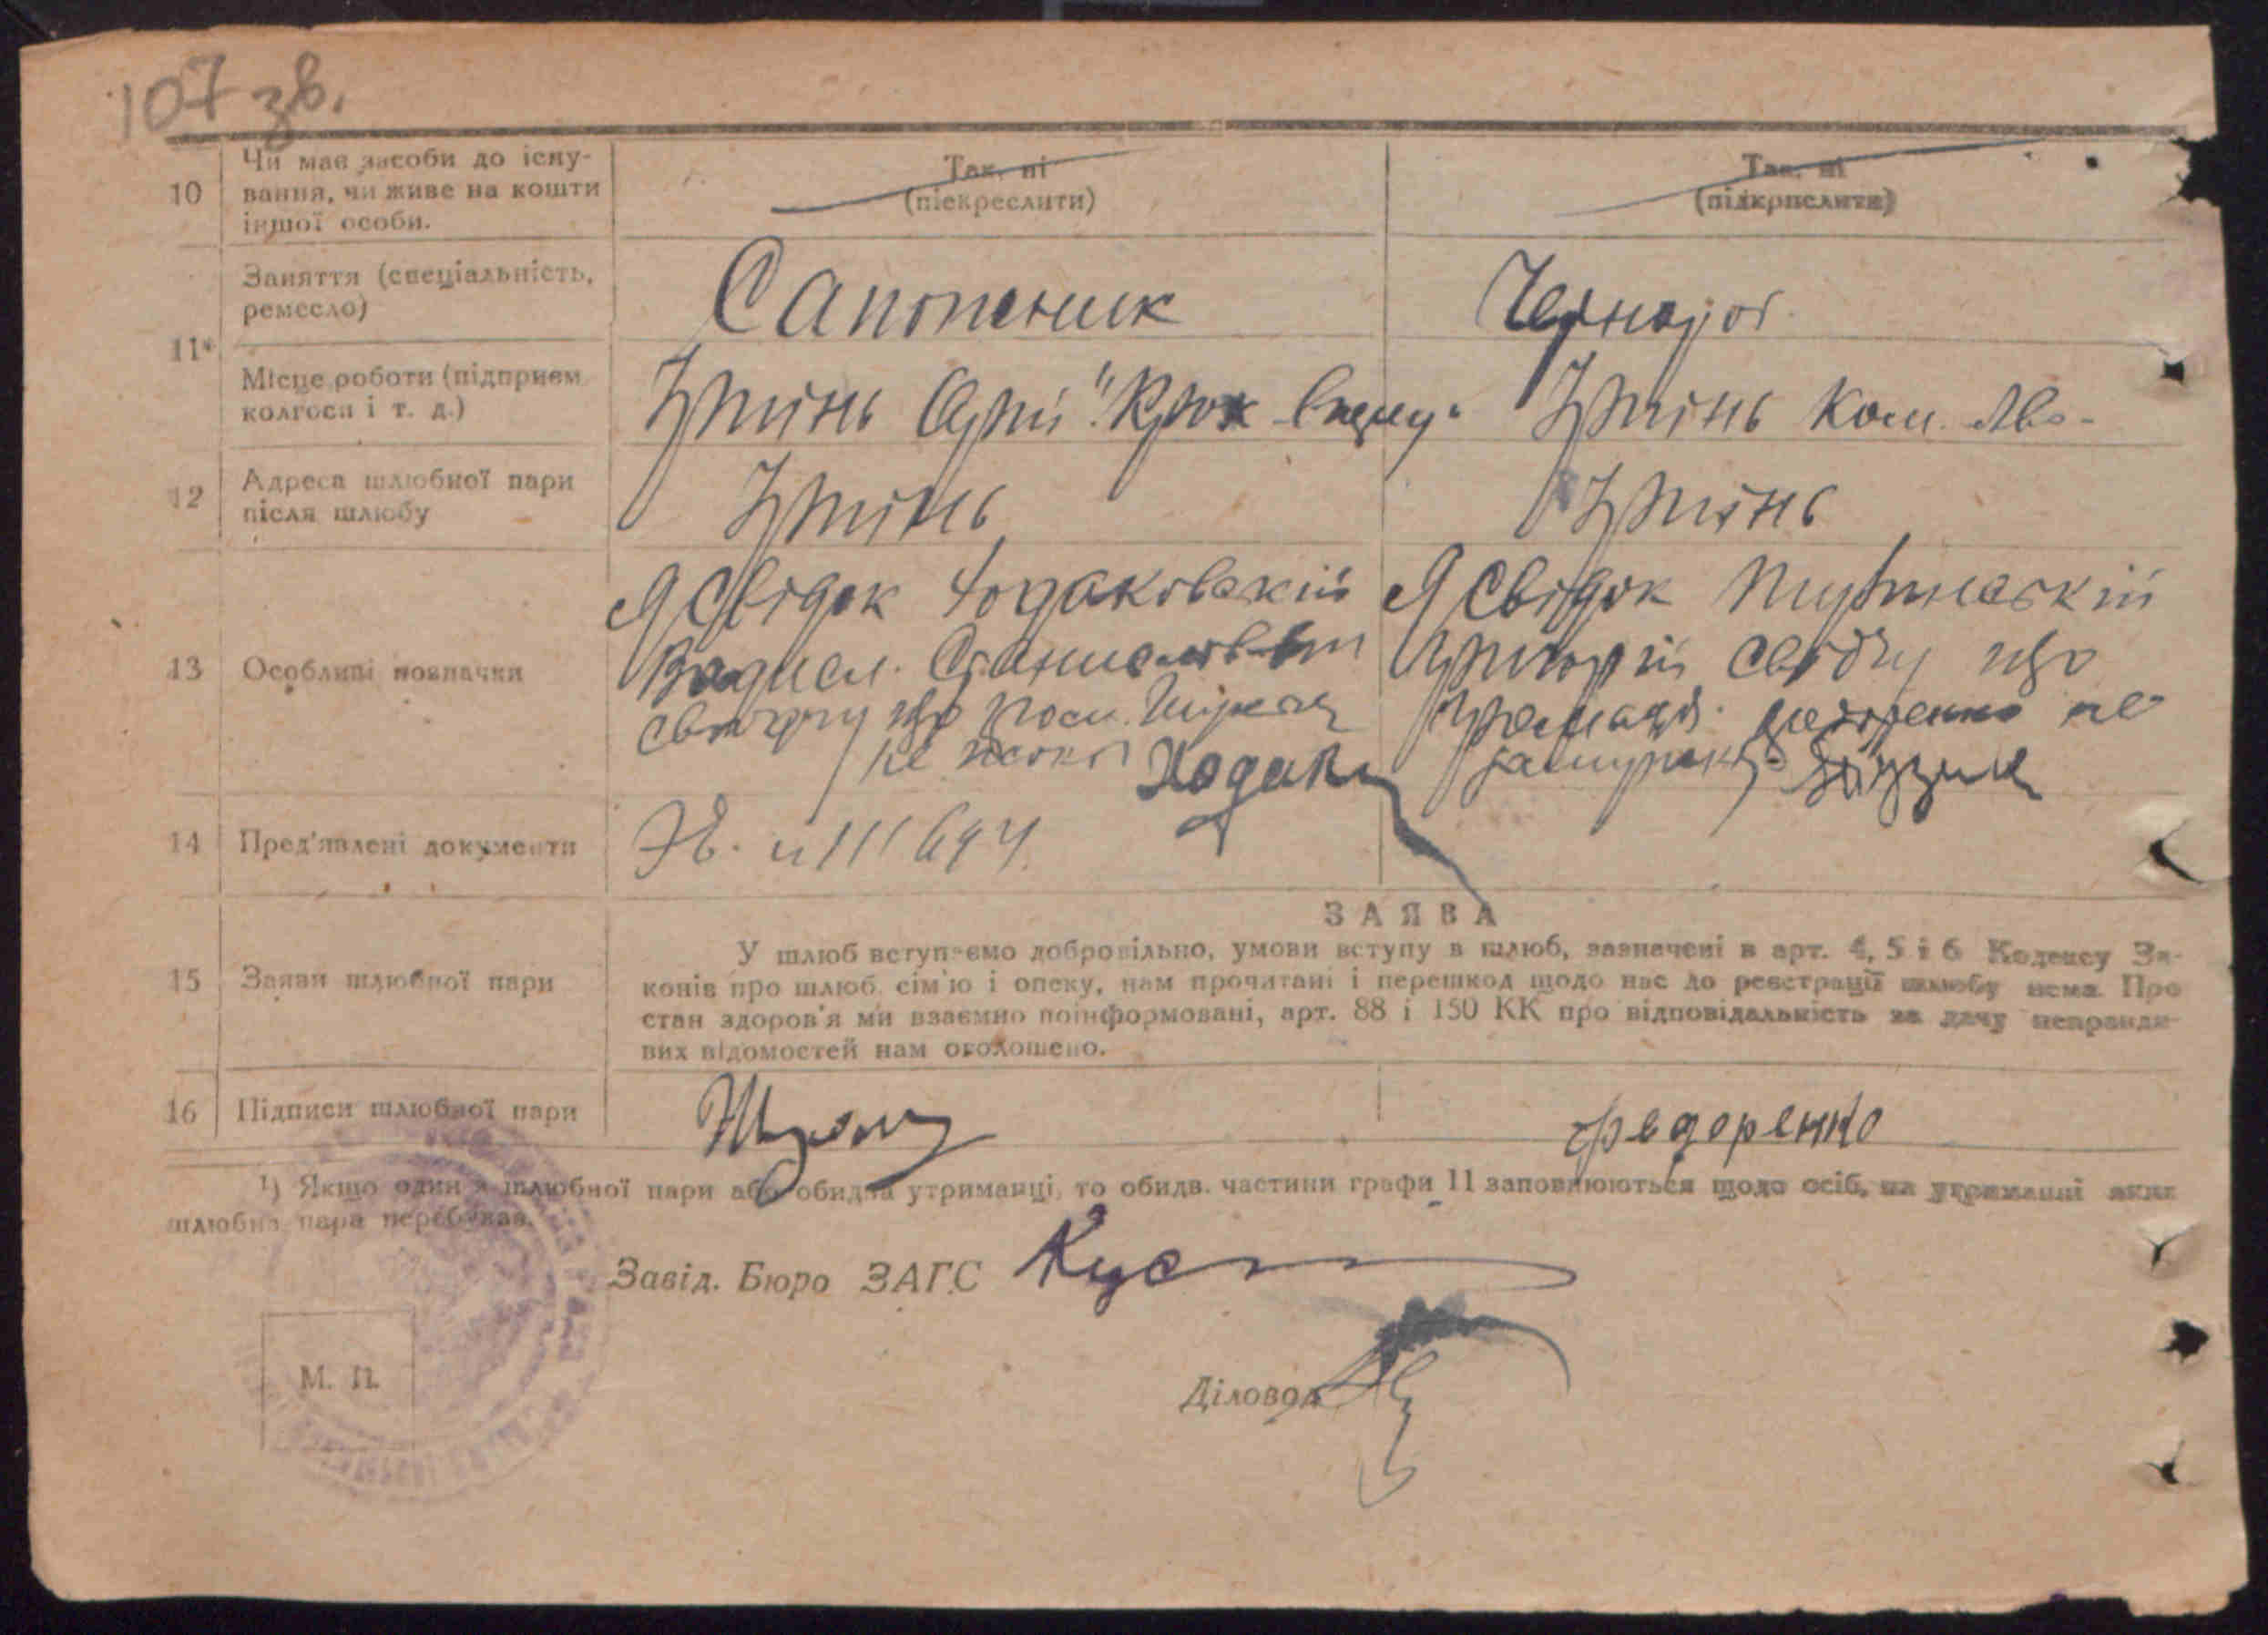 107 зв.
10
Чи має засоби до існу-
вання, чи живе на кошти
іншої особи.
Так, ні
(піекреслити)
Так, ні
(підкрислити)
11*
Заняття (спеціальність,
ремесло)
Сапожник
Чорнороб.
Місце роботи (підприєм
колгосп і т. д.)
Ірпінь Арті "Крок вперед"
Ірпінь Ком.
12
Адреса шлюбної пари
після шлюбу
Ірпінь
Ірпінь
13
Особливі позначки
Я Свідок Ходаковский
Станиславович
свідчу що
не жонат Ходак
Я Свідок
Григорій свідчу що
Громадя. Федоренко не
замужня
14
Пред'явлені документи
15
Заяви шлюбної пари
ЗАЯВА
У шлюб вступаємо добровільно, умови вступу в шлюб, зазначені в арт. 4, 5 і 6 Кодексу За-
конів про шлюб, сім'ю і опеку, нам прочитані і перешкод щодо нас до реєстрації шлюбу нема. Про
стан здоров'я ми взаємно поінформовані, арт. 88 і 150 КК про відповідальність за дачу неправди-
вих відомостей нам оголошено.
16
Підписи шлюбної пари
Федоренко
¹) Якщо один з шлюбної пари або обидва утриманці, то обидв. частини графи 11 заповнюються щодо осіб, на утриманні яких
шлюбна пара перебуває.
Завід. Бюро ЗАГС
М. П.
Діловод